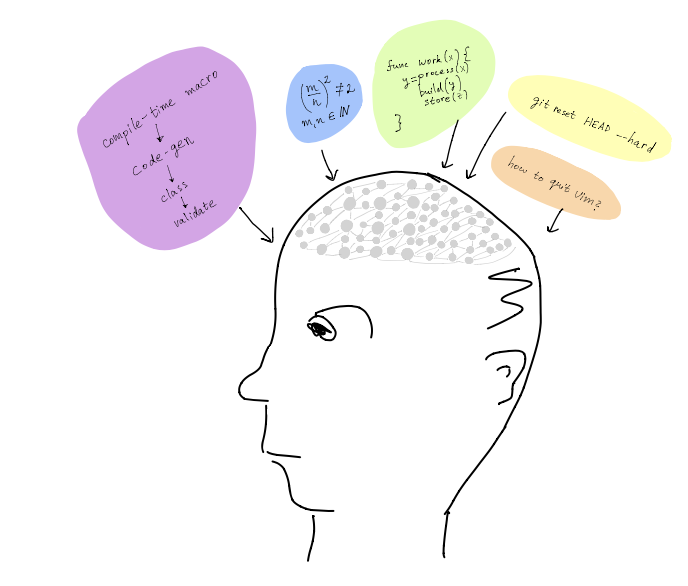 compile-time macro
code-gen
class
validate
(m/n)² ≠ 2
m,n ∈ ℕ
func work(x) {
y=process(x)
build(y)
store(z)
}
git reset HEAD --hard
how to quit Vim?